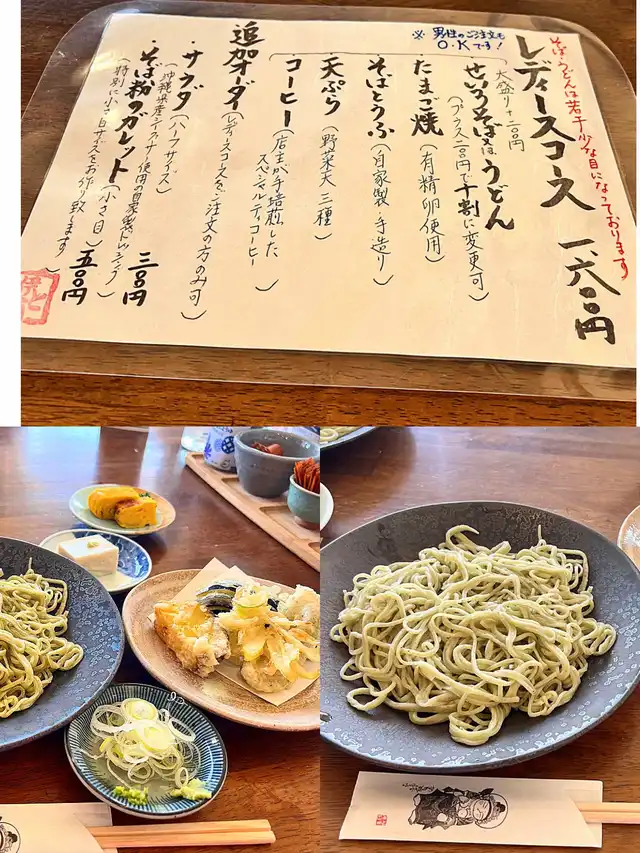 そば・うどんは若干少な目になっております
レディースコース 一、六〇〇円
※ 男性のご注文も
O.Kです!
大盛り+二〇〇円
せいろそば又はうどん
(プラス二〇〇円で十割に変更可)
たまご焼(有精卵使用)
そばとうふ(自家製・手造り)
天ぷら(野菜天三種)
コーヒー(店主が手焙煎した
スペシャルティコーヒー)
追加オーダー(レディースコースをご注文の方のみ可)
・サラダ(ハーフサイズ) 三〇〇円
(沖縄県産シークヮーサー使用の自家製ドレッシング)
・そば粉のガレット(小さ目) 五〇〇円
(特別に小さ目サイズをお作り致します)